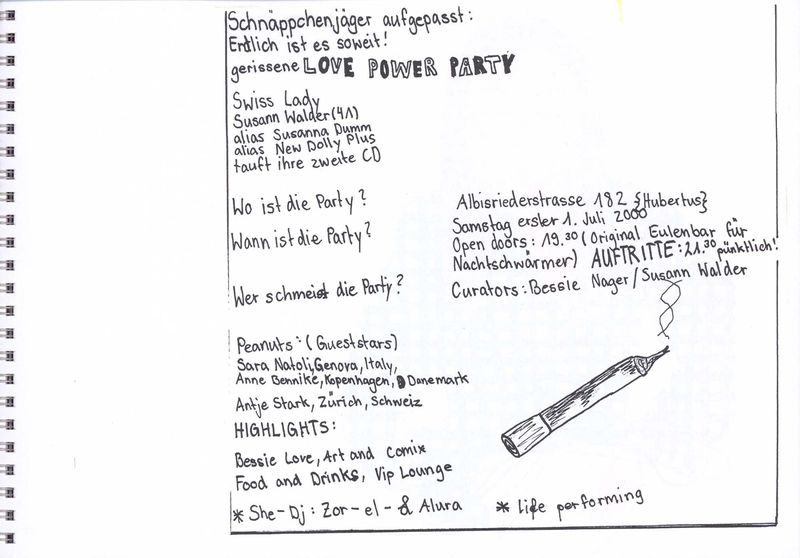 Schnäppchenjäger aufgepasst:
Endlich ist es soweit!
gerissene LOVE POWER PARTY
Swiss Lady
Susann Walder (41)
alias Susanna Dumm
alias New Dolly Plus
tauft ihre zweite CD
Wo ist die Party? Albisriederstrasse 182 {Hubertus}
Wann ist die Party? Samstag erster 1. Juli 2000
Open doors: 19.30 (Original Eulenbar für
Nachtschwärmer) AUFTRITTE: 21.30 pünktlich!
Wer schmeist die Party? Curators: Bessie Nager/Susann Walder
Peanuts: (Gueststars)
Sara Natoli, Genova, Italy,
Anne Bennike, Kopenhagen, Danemark
Antje Stark, Zürich, Schweiz
HIGHLIGHTS:
Bessie Love, Art and Comix
Food and Drinks, Vip Lounge
* She-Dj: Zor-el-& Alura * life performing